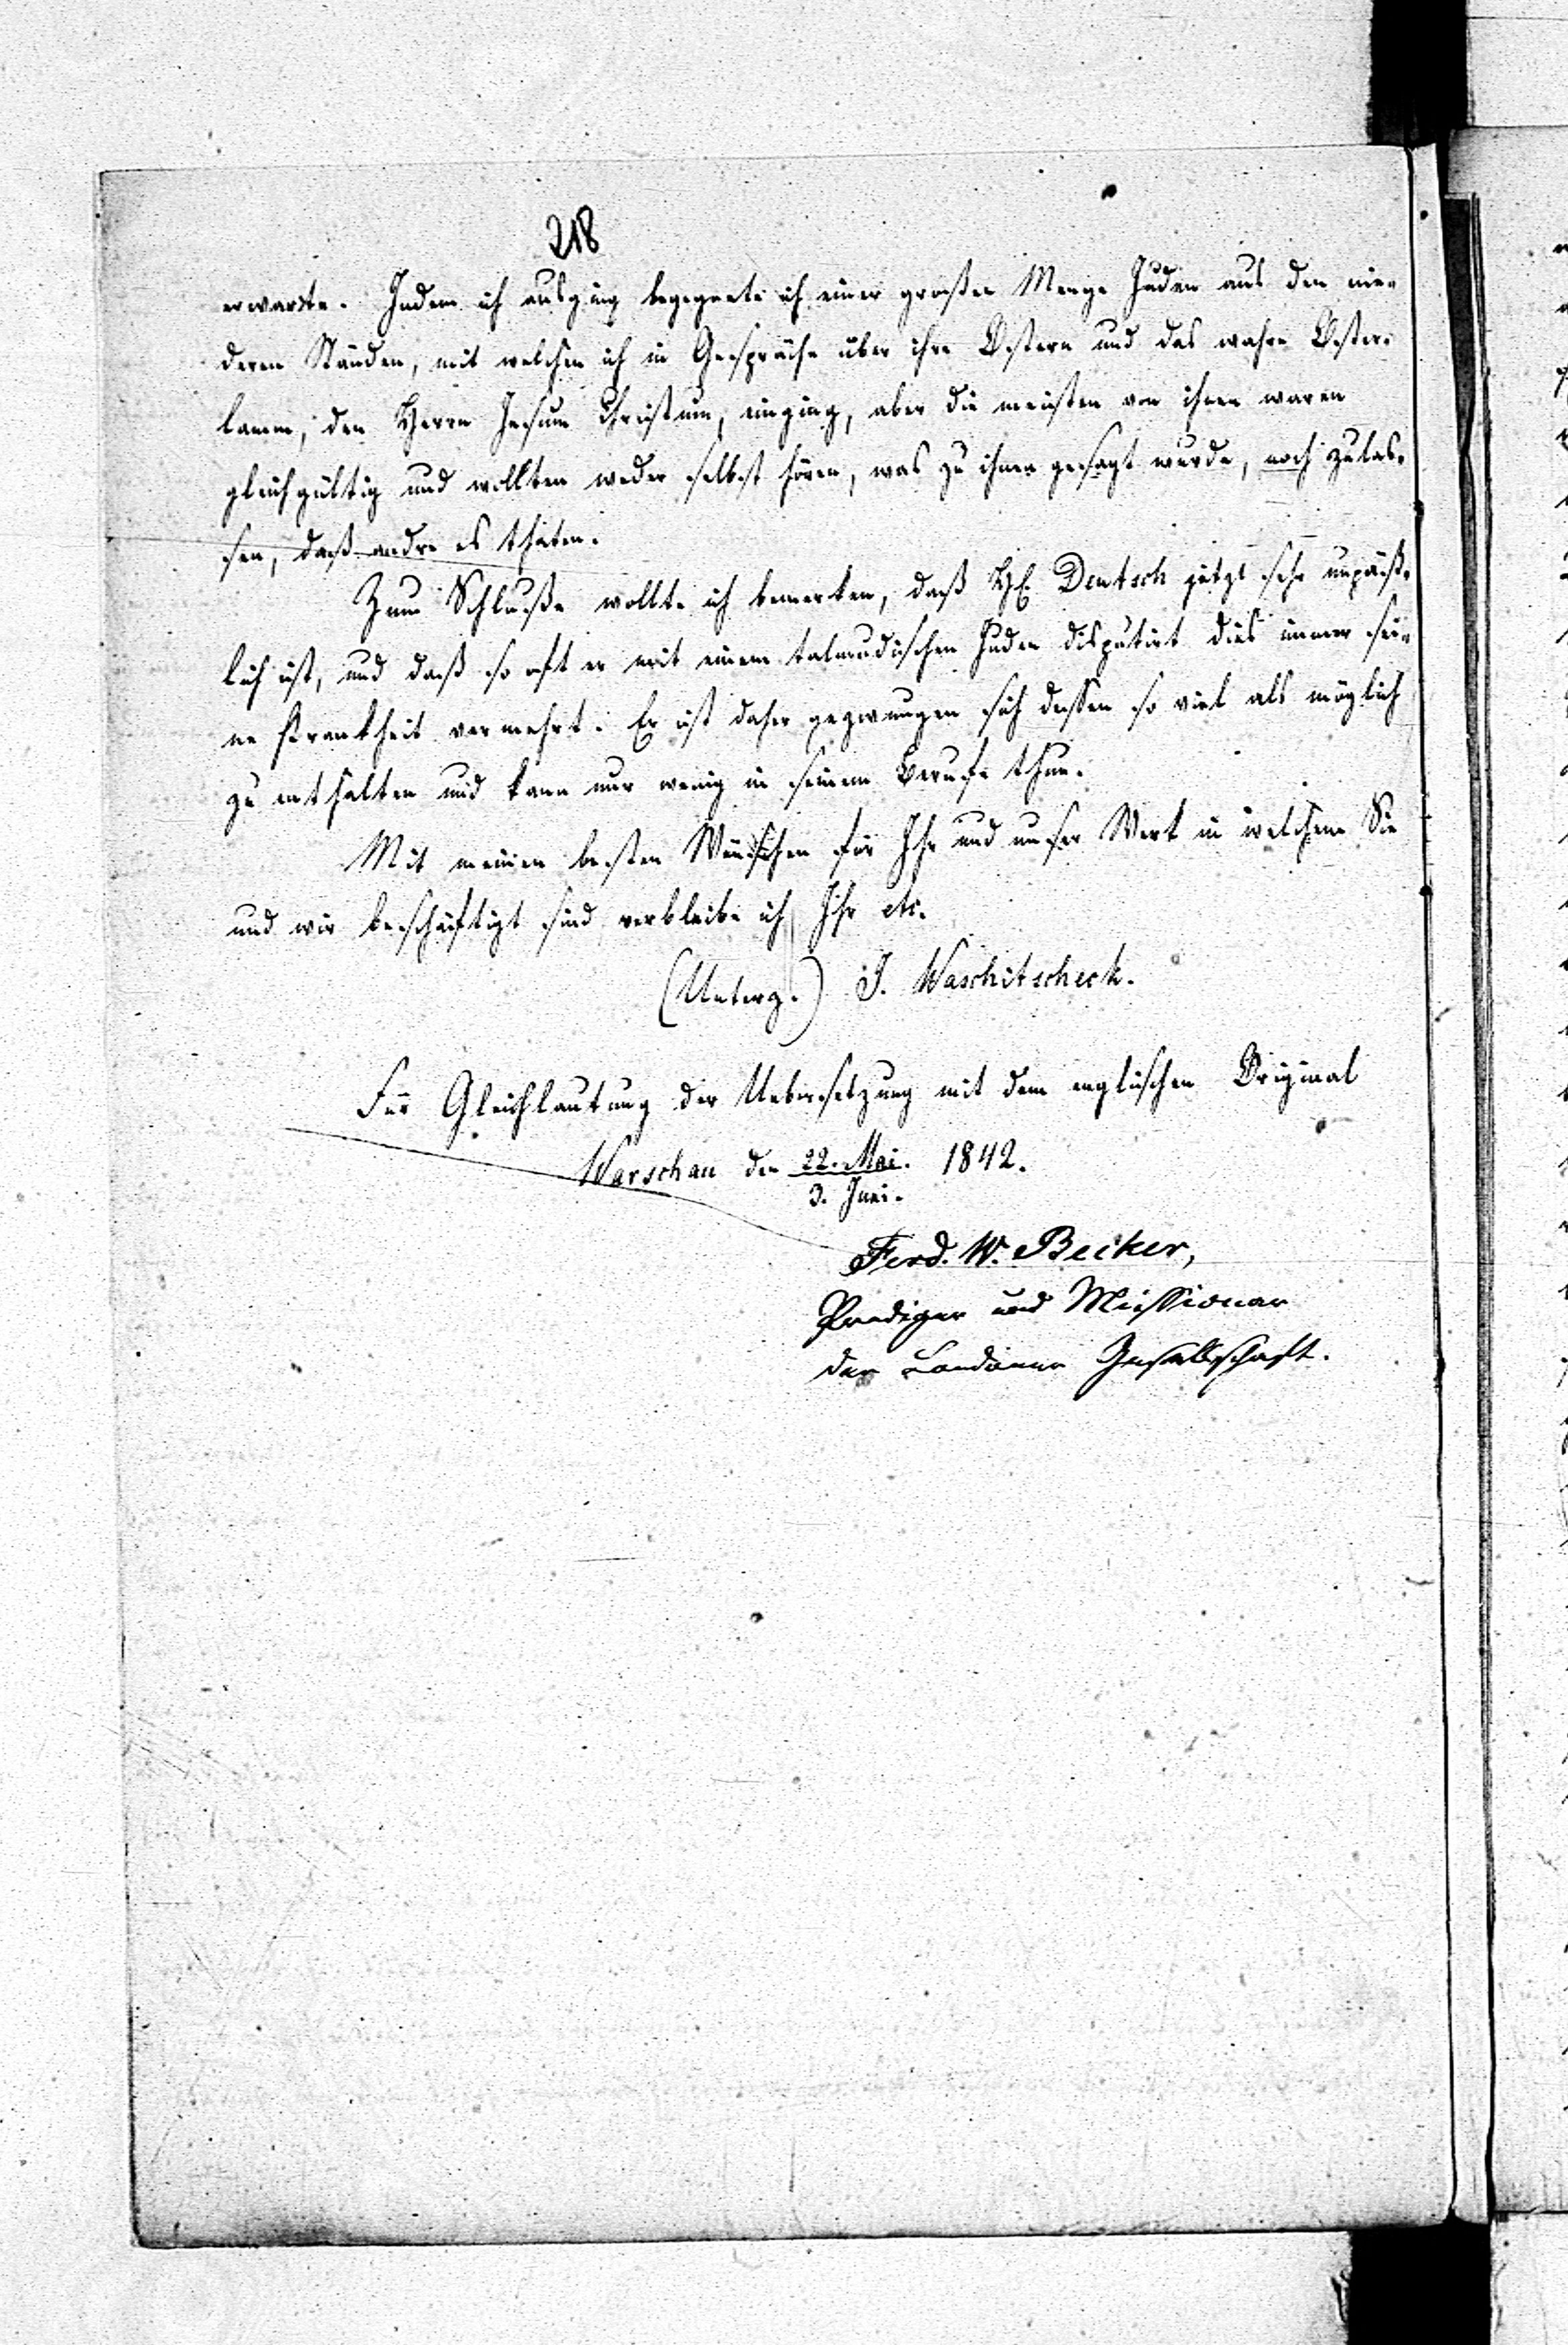 218
erwarte. Indem ich ausging begegnete ich einer großen Menge Juden aus den nie-
deren Ständen, mit welchen ich in Gespräche über ihre Ostern und das wahre Oster-
lamm, den Herrn Jesum Christum, einging, aber die meisten von ihnen waren
gleichgültig und wollten weder selbst hören, was zu ihnen gesagt wurde, noch zulas-
sen, daß andre es thäten.
Zum Schluße wollte ich bemerken, daß H. Deutsch jetzt sehr unpäß-
lich ist, und daß so oft er mit einem talmudischen Juden disputirt dies immer sei-
ne Krankheit vermehrt. Er ist daher gezwungen sich dessen so viel als möglich
zu enthalten und kann nur wenig in seinem Berufe thun.
Mit meinen besten Wünschen für Ihr und unser Werk in welchem Sie
und wir beschäftigt sind verbleibe ich Ihr etc.
(Unterz.) J. Waschitscheck.
Für Gleichlautung der Uebersetzung mit dem englischen Original
Warschau den 22. Mai. 1842.
3. Juni.
Ferd. W. Becker,
Prediger und Missionar
der Londoner Gesellschaft.